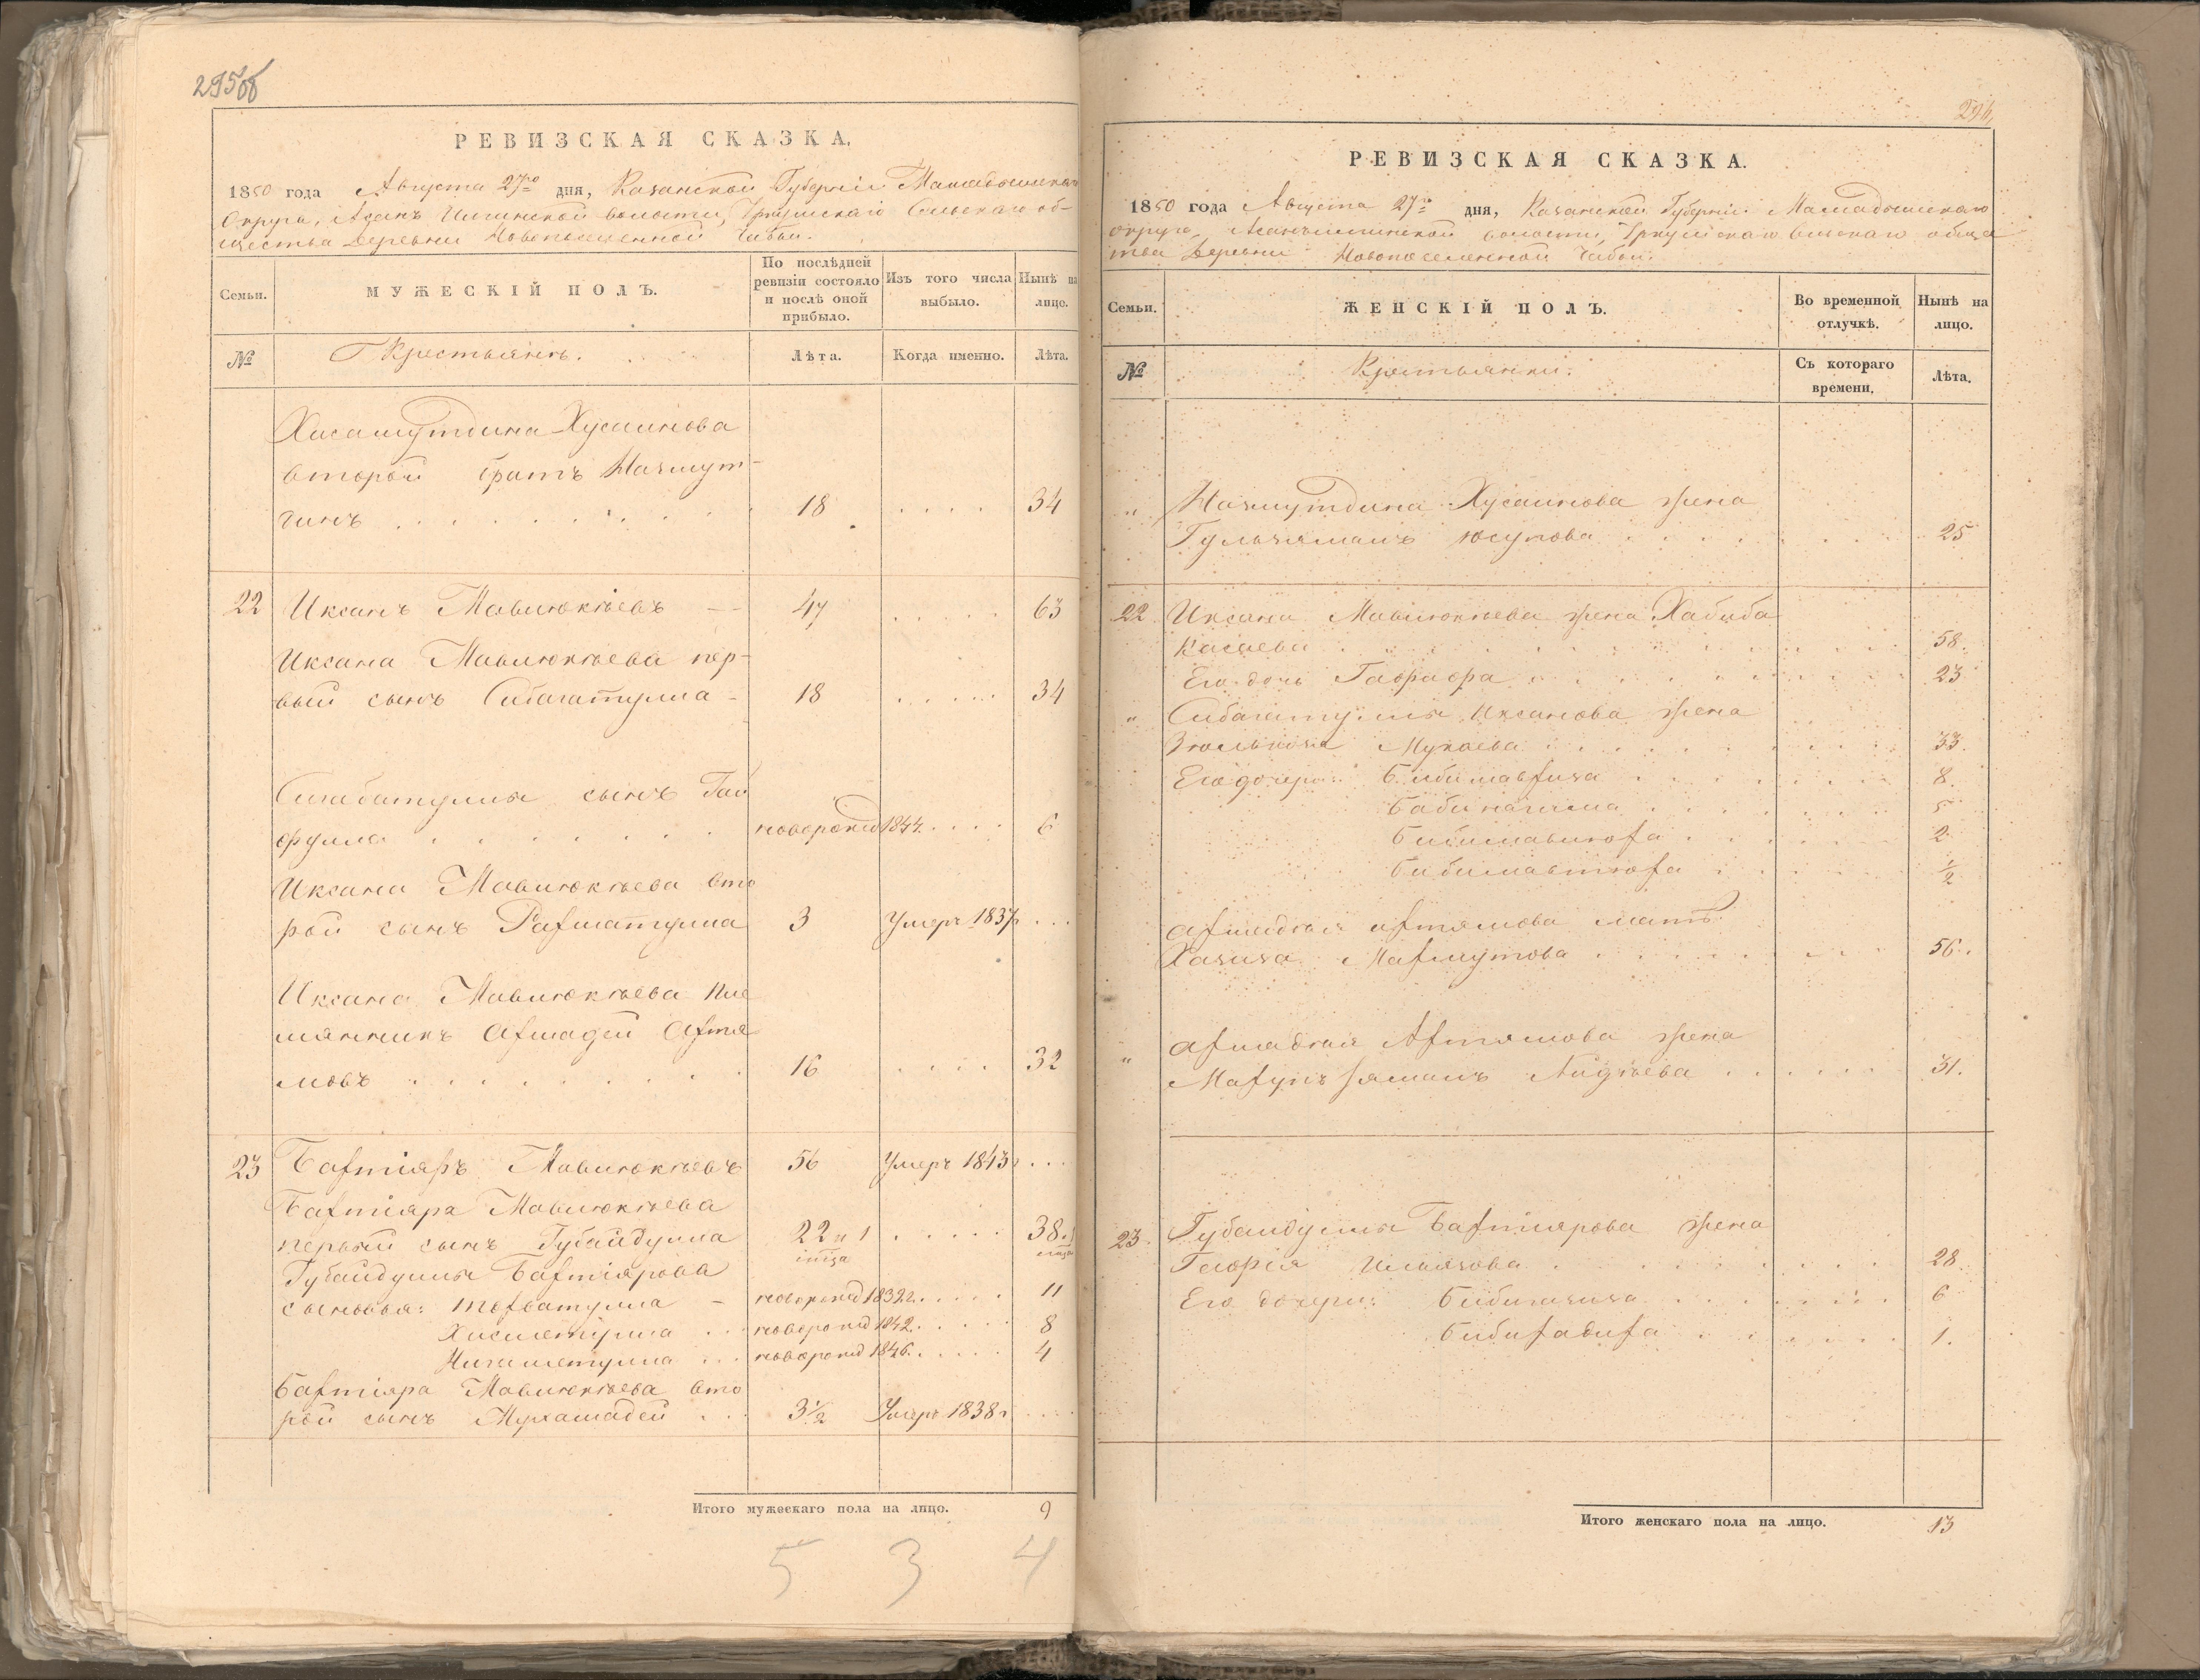 295об
РЕВИЗСКАЯ СКАЗКА.
1850 года Августа 27го дня, Казанской Губерніи Мамадышскаго
Округа, Асанъ Илгинской волости, Уркушскаго Сельскаго об-
щества Деревни Новопоселенной Чабьи.
Семьи.
МУЖЕСКІЙ ПОЛЪ.
По послѣдней ревизіи состояло и послѣ оной прибыло.
Изъ того числа выбыло.
Нынѣ на лицо.
№
Крестьянъ.
Лѣта.
Когда именно.
Лѣта.
Хисамутдина Хусаинова
второй братъ Назмут-
динъ 18 34
22 Иксанъ Мавлюкѣевъ 47 63
Иксана Мавлюкѣева пер-
вый сынъ Сибагатулла 18 34
Сигабатуллы сынъ Гай
фулла новорожд 1844. 6
Иксана Мавлюкѣева вто
рой сынъ Рахматулла 3 Умеръ 1837г
Иксана Мавлюкѣева пле
мянникъ Ахмадей Ахтя
мовъ 16 32
23 Бахтіяръ Мавлюкѣевъ 56 Умеръ 1843г
Бахтіяра Мавлюкѣева
первый сынъ Губайдулла 22 и 1 38.
Губайдуллы Бахтіярова
сыновья: Тохватулла новорожд 1832г. 11
Хисметулла новорожд 1842. 8
Нигаметулла новорожд 1846. 4
Бахтіяра Мавлюкѣева вто
рой сынъ Мухамадей 3½ Умеръ 1838г
Итого мужескаго пола на лицо. 9
5 3 4
296
РЕВИЗСКАЯ СКАЗКА.
1850 года Августа 27го дня, Казанской Губерніи Мамадышскаго
округа, Асанъилгинской волости, Уркушскаго Сельскаго общес
тва Деревни Новопоселенной Чабьи.
Семьи.
ЖЕНСКІЙ ПОЛЪ.
Во временной отлучкѣ.
Нынѣ на лицо.
№
Крестьянки.
Съ котораго времени.
Лѣта.
" Назмутдина Хусаинова жена
Гульчямалъ Юсупова 25
22 Иксана Мавлюкѣева жена Хабиба
Касаева 58.
Его дочь Гафрафа 23
" Сибагатуллы Иксанова жена
Мукаева 33.
Его дочери: Бибимавхиза 8.
5
Бибимавлюха 2
Бибимавтюха ½
Ахмадѣя Ахтямова мать
Хазиза Махмутова 56.
" Ахмадѣя Ахтямова жена
31.
23. Губайдуллы Бахтіярова жена
Гафія Ильязова 28.
Его дочери: Бибигазиза 6
Бибихадиха 1.
Итого женскаго пола на лицо. 13